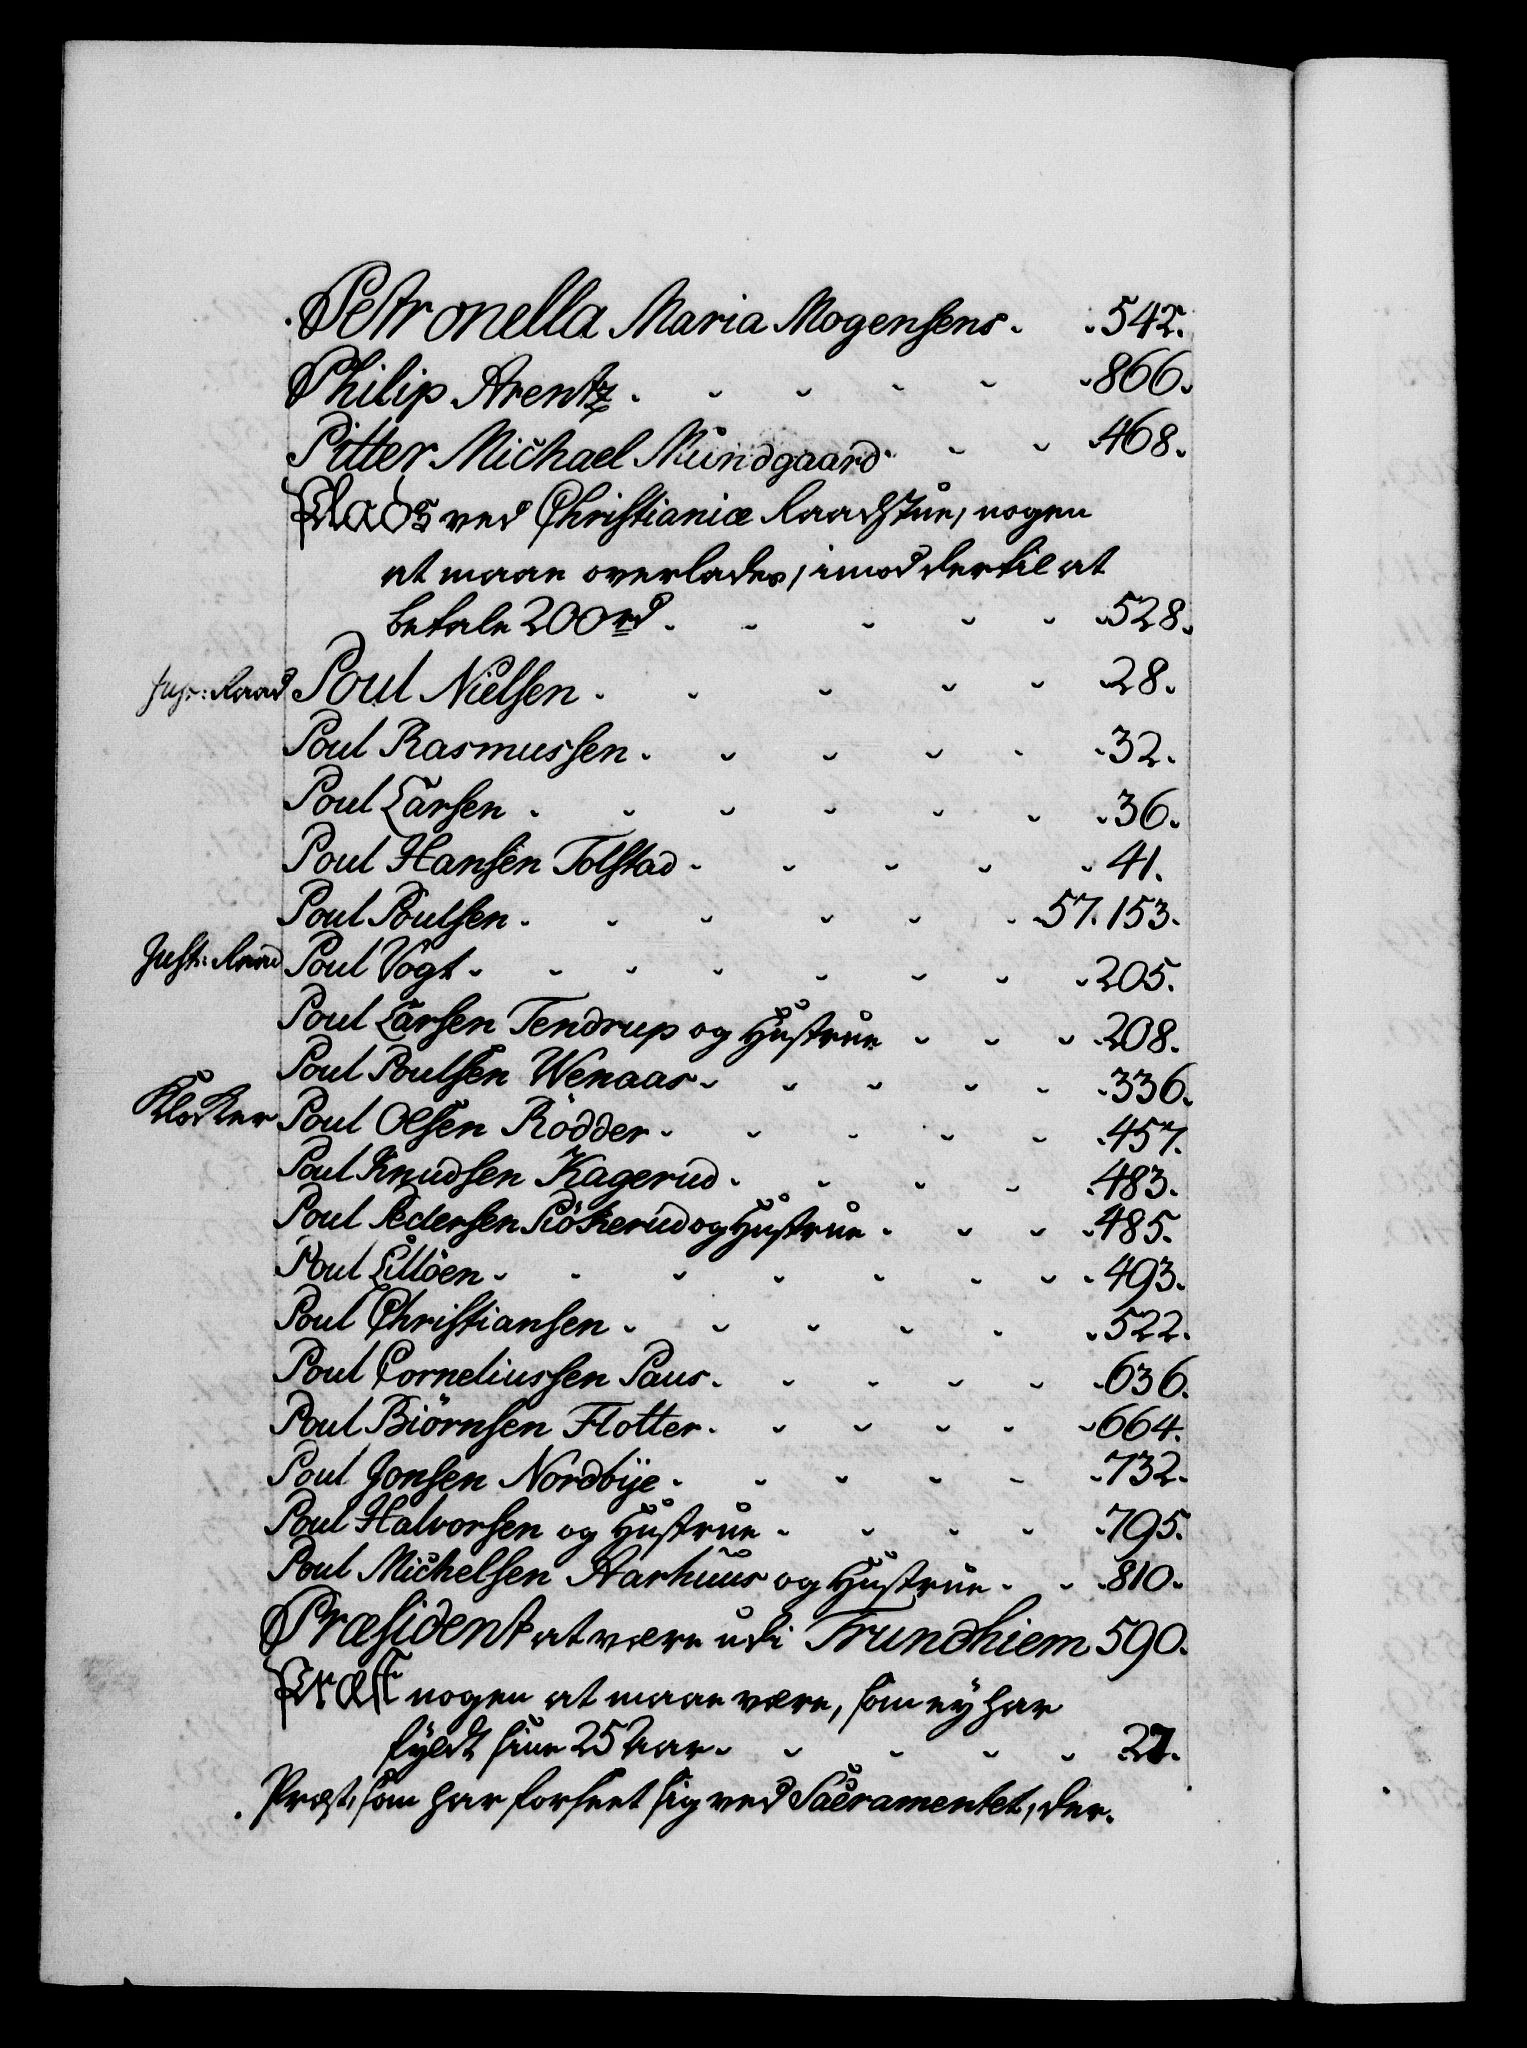 Petronella Maria Mogensens. 542.
Philip Arentz. 866.
Pitter Michael Mundgaard. 468.
Plads ved Christianiæ Raadstue, nogen
at maae overlades, imod dertil at
betale 200 rd. 528.
Just: Raad Poul Nielsen. 28.
Poul Rasmussen. 32.
Poul Larsen. 36.
Poul Hansen Tolstad. 41.
Poul Poulsen. 57. 153.
Just: Raad Poul Vogt. 205.
Poul Larsen Tendrup og Hustrue 208.
Poul Poulsen Wenaas. 336.
Klocker Poul Olsen Rödder. 457.
Poul Knudsen Kagerud. 483.
Poul Pedersen Röskerud og Hustrue. 485.
Poul Lillöen. 493.
Poul Christiansen. 522.
Poul Corneliussen Paus. 636.
Poul Biörnsen Flotter. 664.
Poul Jonsen Nordbÿe. 732.
Poul Halvorsen og Hustrue. 795.
Poul Michelsen Aarhuus og Hustrue. 810.
Præsident at være udi Trundhiem 590.
Præst nogen at maae være, som ey har
fyldt sine 25 Aar. 27.
Præst, som har forseet sig ved Sacramentet, der.